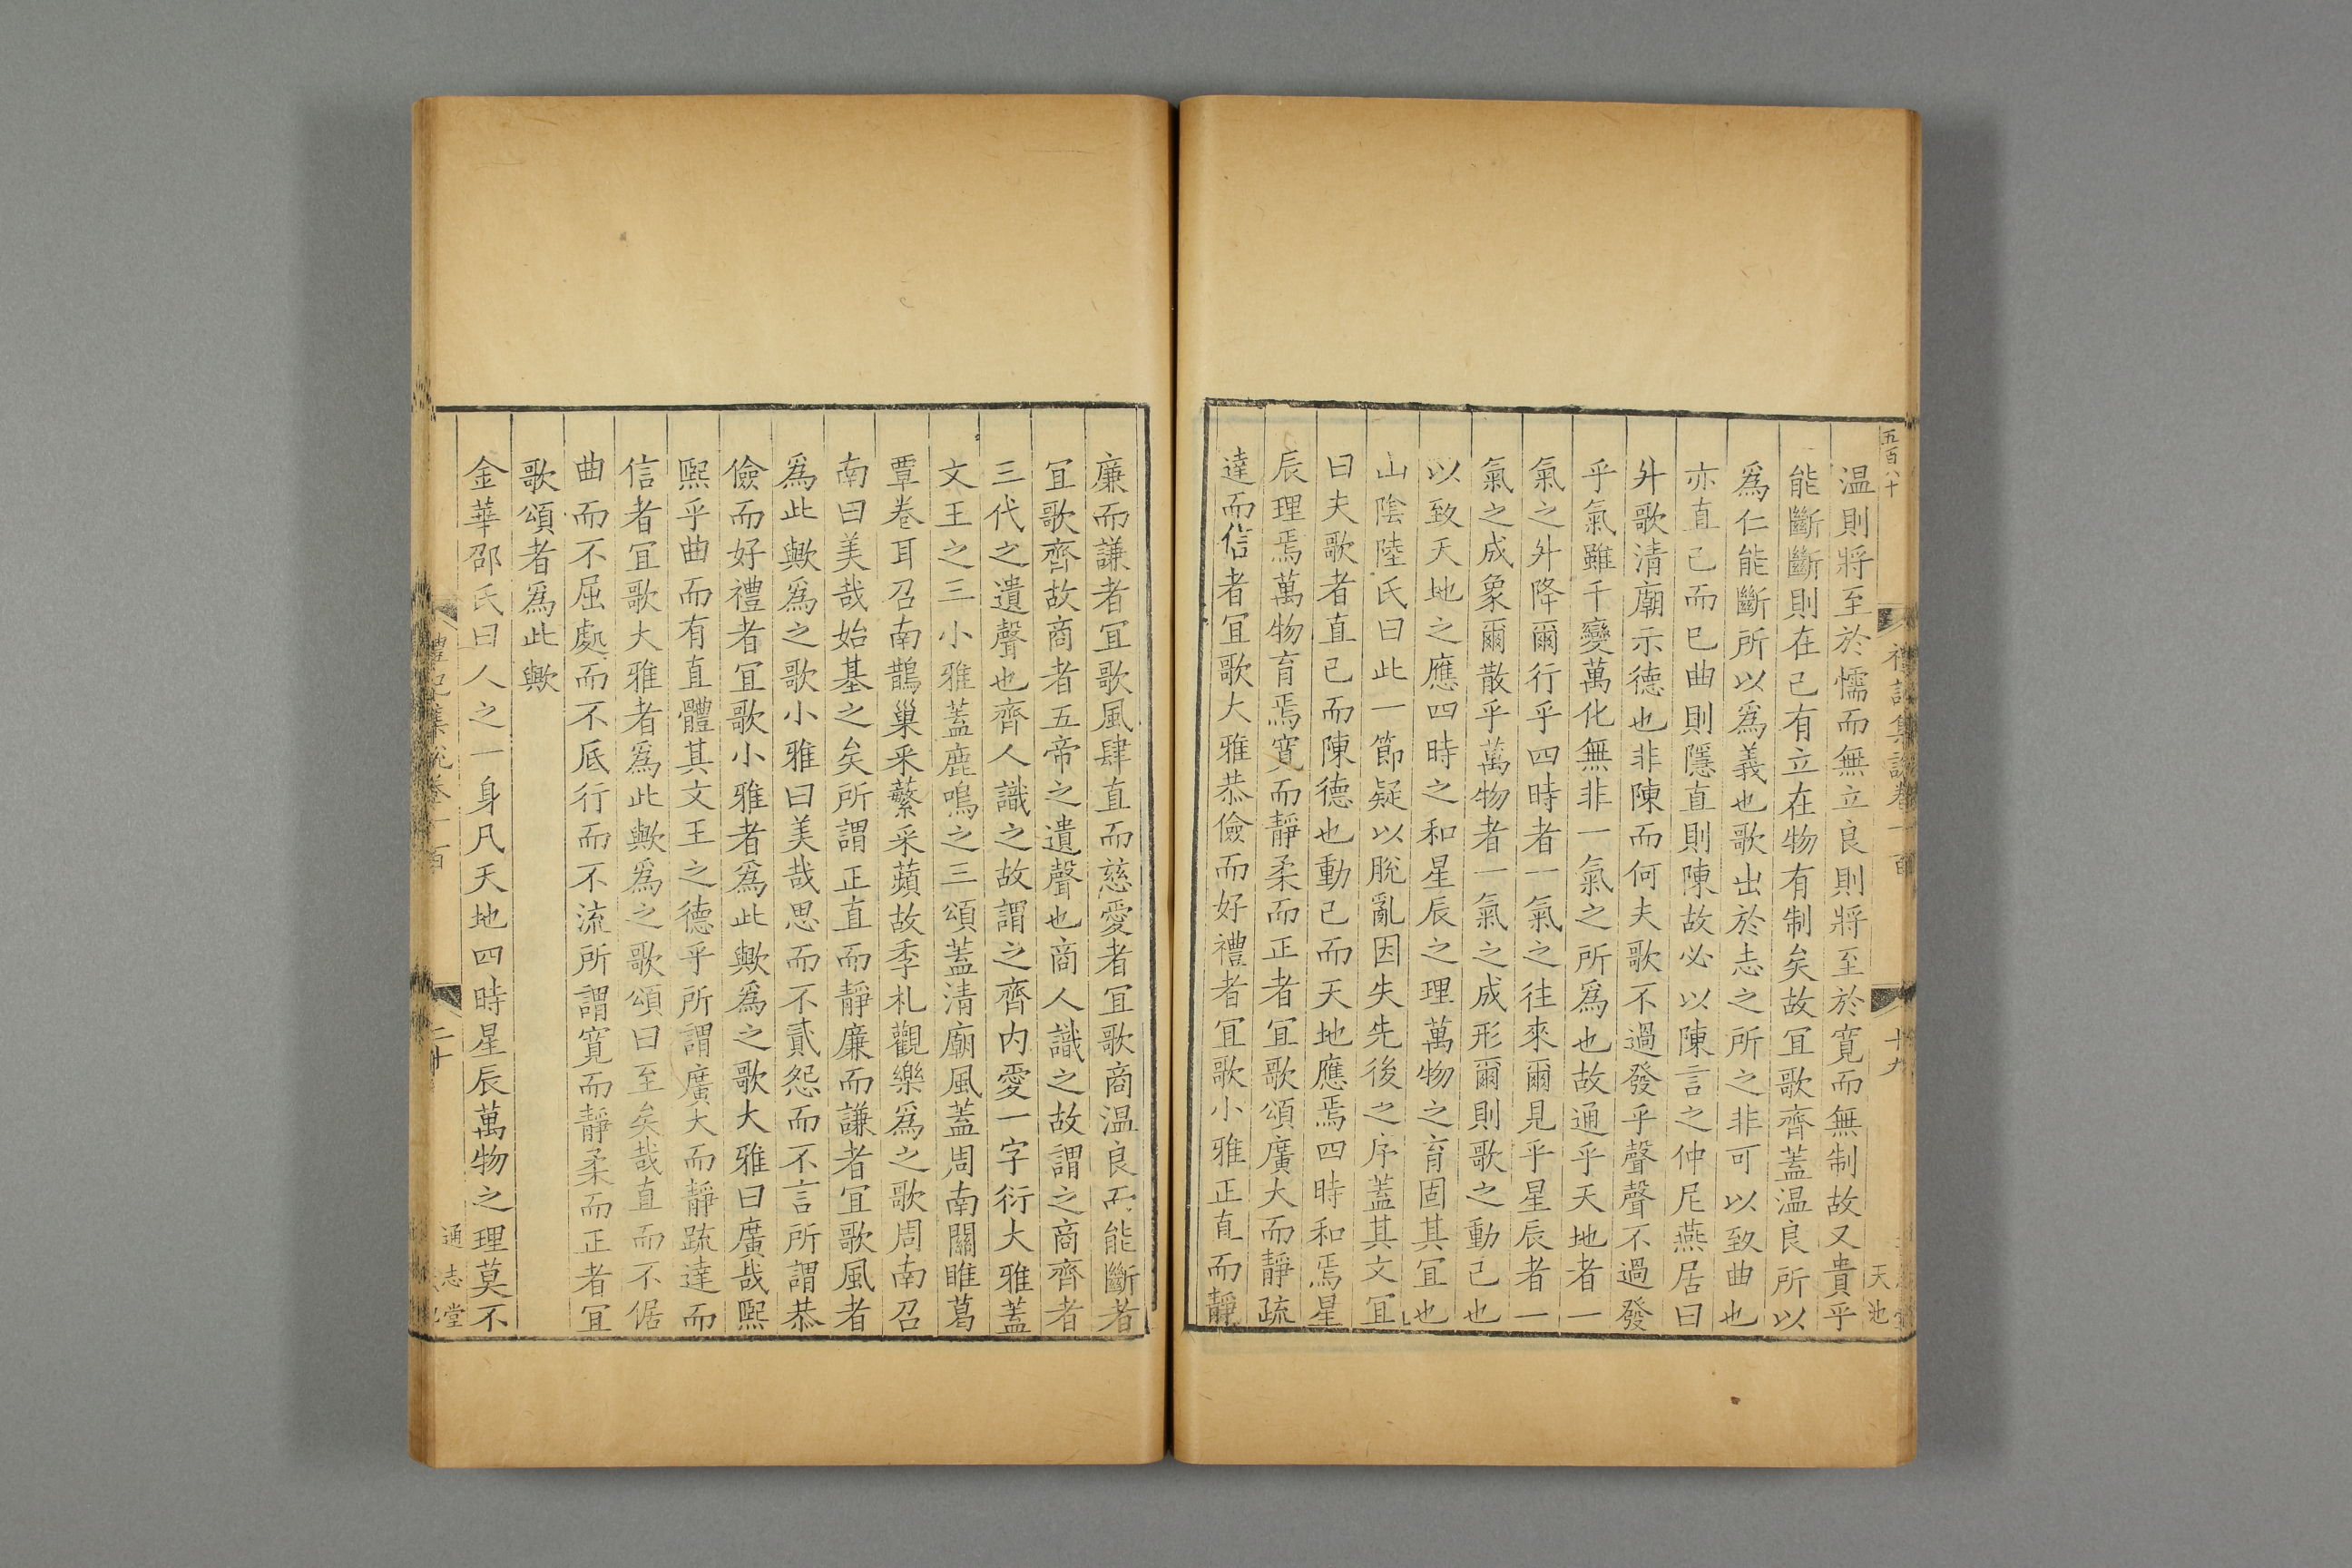 五百八十
禮記集說卷一百
十九
天池
温則將至於懦而無立良則將至於寛而無制故又貴乎
能斷斷則在己有立在物有制矣故宜歌齊蓋温良所以
爲仁能斷所以爲義也歌出於志之所之非可以致曲也
亦直己而已曲則隱直則陳故必以陳言之仲尼燕居曰
升歌清廟示德也非陳而何夫歌不過發乎聲聲不過發
乎氣雖千變萬化無非一氣之所爲也故通乎天地者一
氣之升降爾行乎四時者一氣之往來爾見乎星辰者一
氣之成象爾散乎萬物者一氣之成形爾則歌之動己也
以致天地之應四時之和星辰之理萬物之育固其宜也
山陰陸氏曰此一節疑以脫亂因失先後之序蓋其文宜
曰夫歌者直己而陳德也動己而天地應焉四時和焉星
辰理焉萬物育焉寛而靜柔而正者宜歌頌廣大而靜疏
達而信者宜歌大雅恭儉而好禮者宜歌小雅正直而靜
廉而謙者宜歌風肆直而慈愛者宜歌商温良而能斷者
宜歌齊故商者五帝之遺聲也商人識之故謂之商齊者
三代之遺聲也齊人識之故謂之齊内愛一字衍大雅蓋
文王之三小雅蓋鹿鳴之三頌蓋清廟風蓋周南關雎葛
覃卷耳召南鵲巢采蘩采蘋故季札觀樂爲之歌周南召
南曰美哉始基之矣所謂正直而靜廉而謙者宜歌風者
爲此歟爲之歌小雅曰美哉思而不貳怨而不言所謂恭
儉而好禮者宜歌小雅者爲此歟爲之歌大雅曰廣哉熙
熙乎曲而有直體其文王之德乎所謂廣大而靜疏達而
信者宜歌大雅者爲此歟爲之歌頌曰至矣哉直而不倨
曲而不屈處而不底行而不流所謂寛而靜柔而正者宜
歌頌者爲此歟
金華邵氏曰人之一身凡天地四時星辰萬物之理莫不
禮記集說卷一百
二十
通志堂